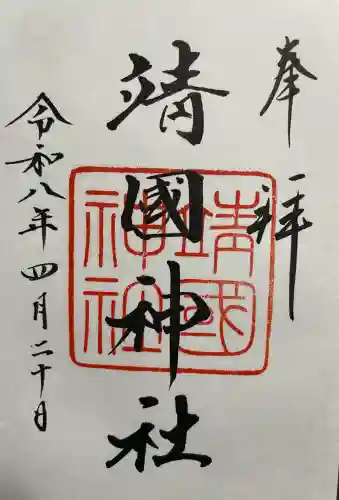 奉拝
靖國神社
靖國
神社
令和八年四月二十日